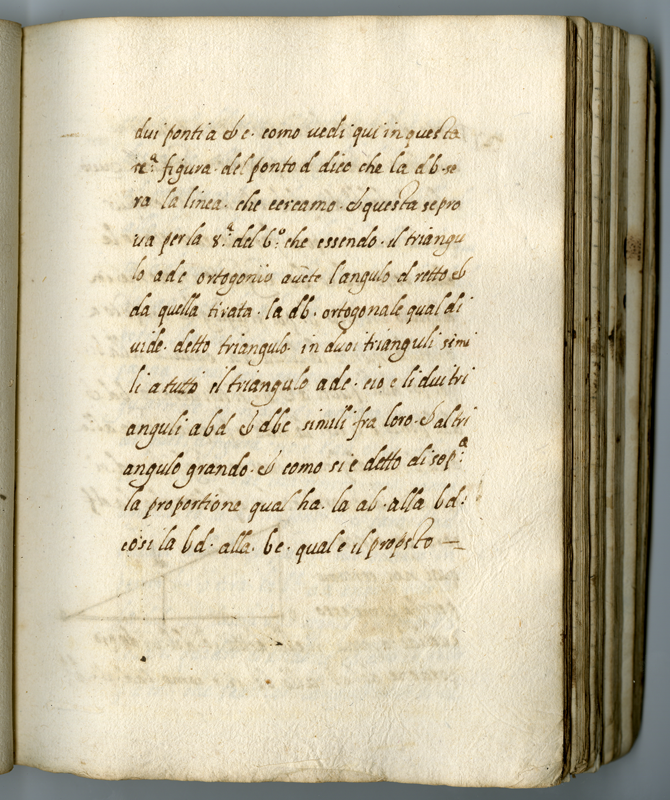 dui ponti a & c. como vedi qui in questa
te.ª figura. del ponto d dico che la db. se
ra la linea. che cercamo. & questa se pro
va per la 8.ª del 6.º che essendo. il triangu
lo adc ortogonio avēte l'angulo d retto &
da quella tirata. la db. ortogonale qual di
vide. detto triangulo. in duoi trianguli simi
li a tutto il triangulo adc. cio e li dui tri
anguli abd & dbc simili fra loro. & al tri
angulo grande. & como si e detto di sop.ª
la proportione qual ha. la ab. alla bd.
cosi la bd. alla. bc. qual e il propsto